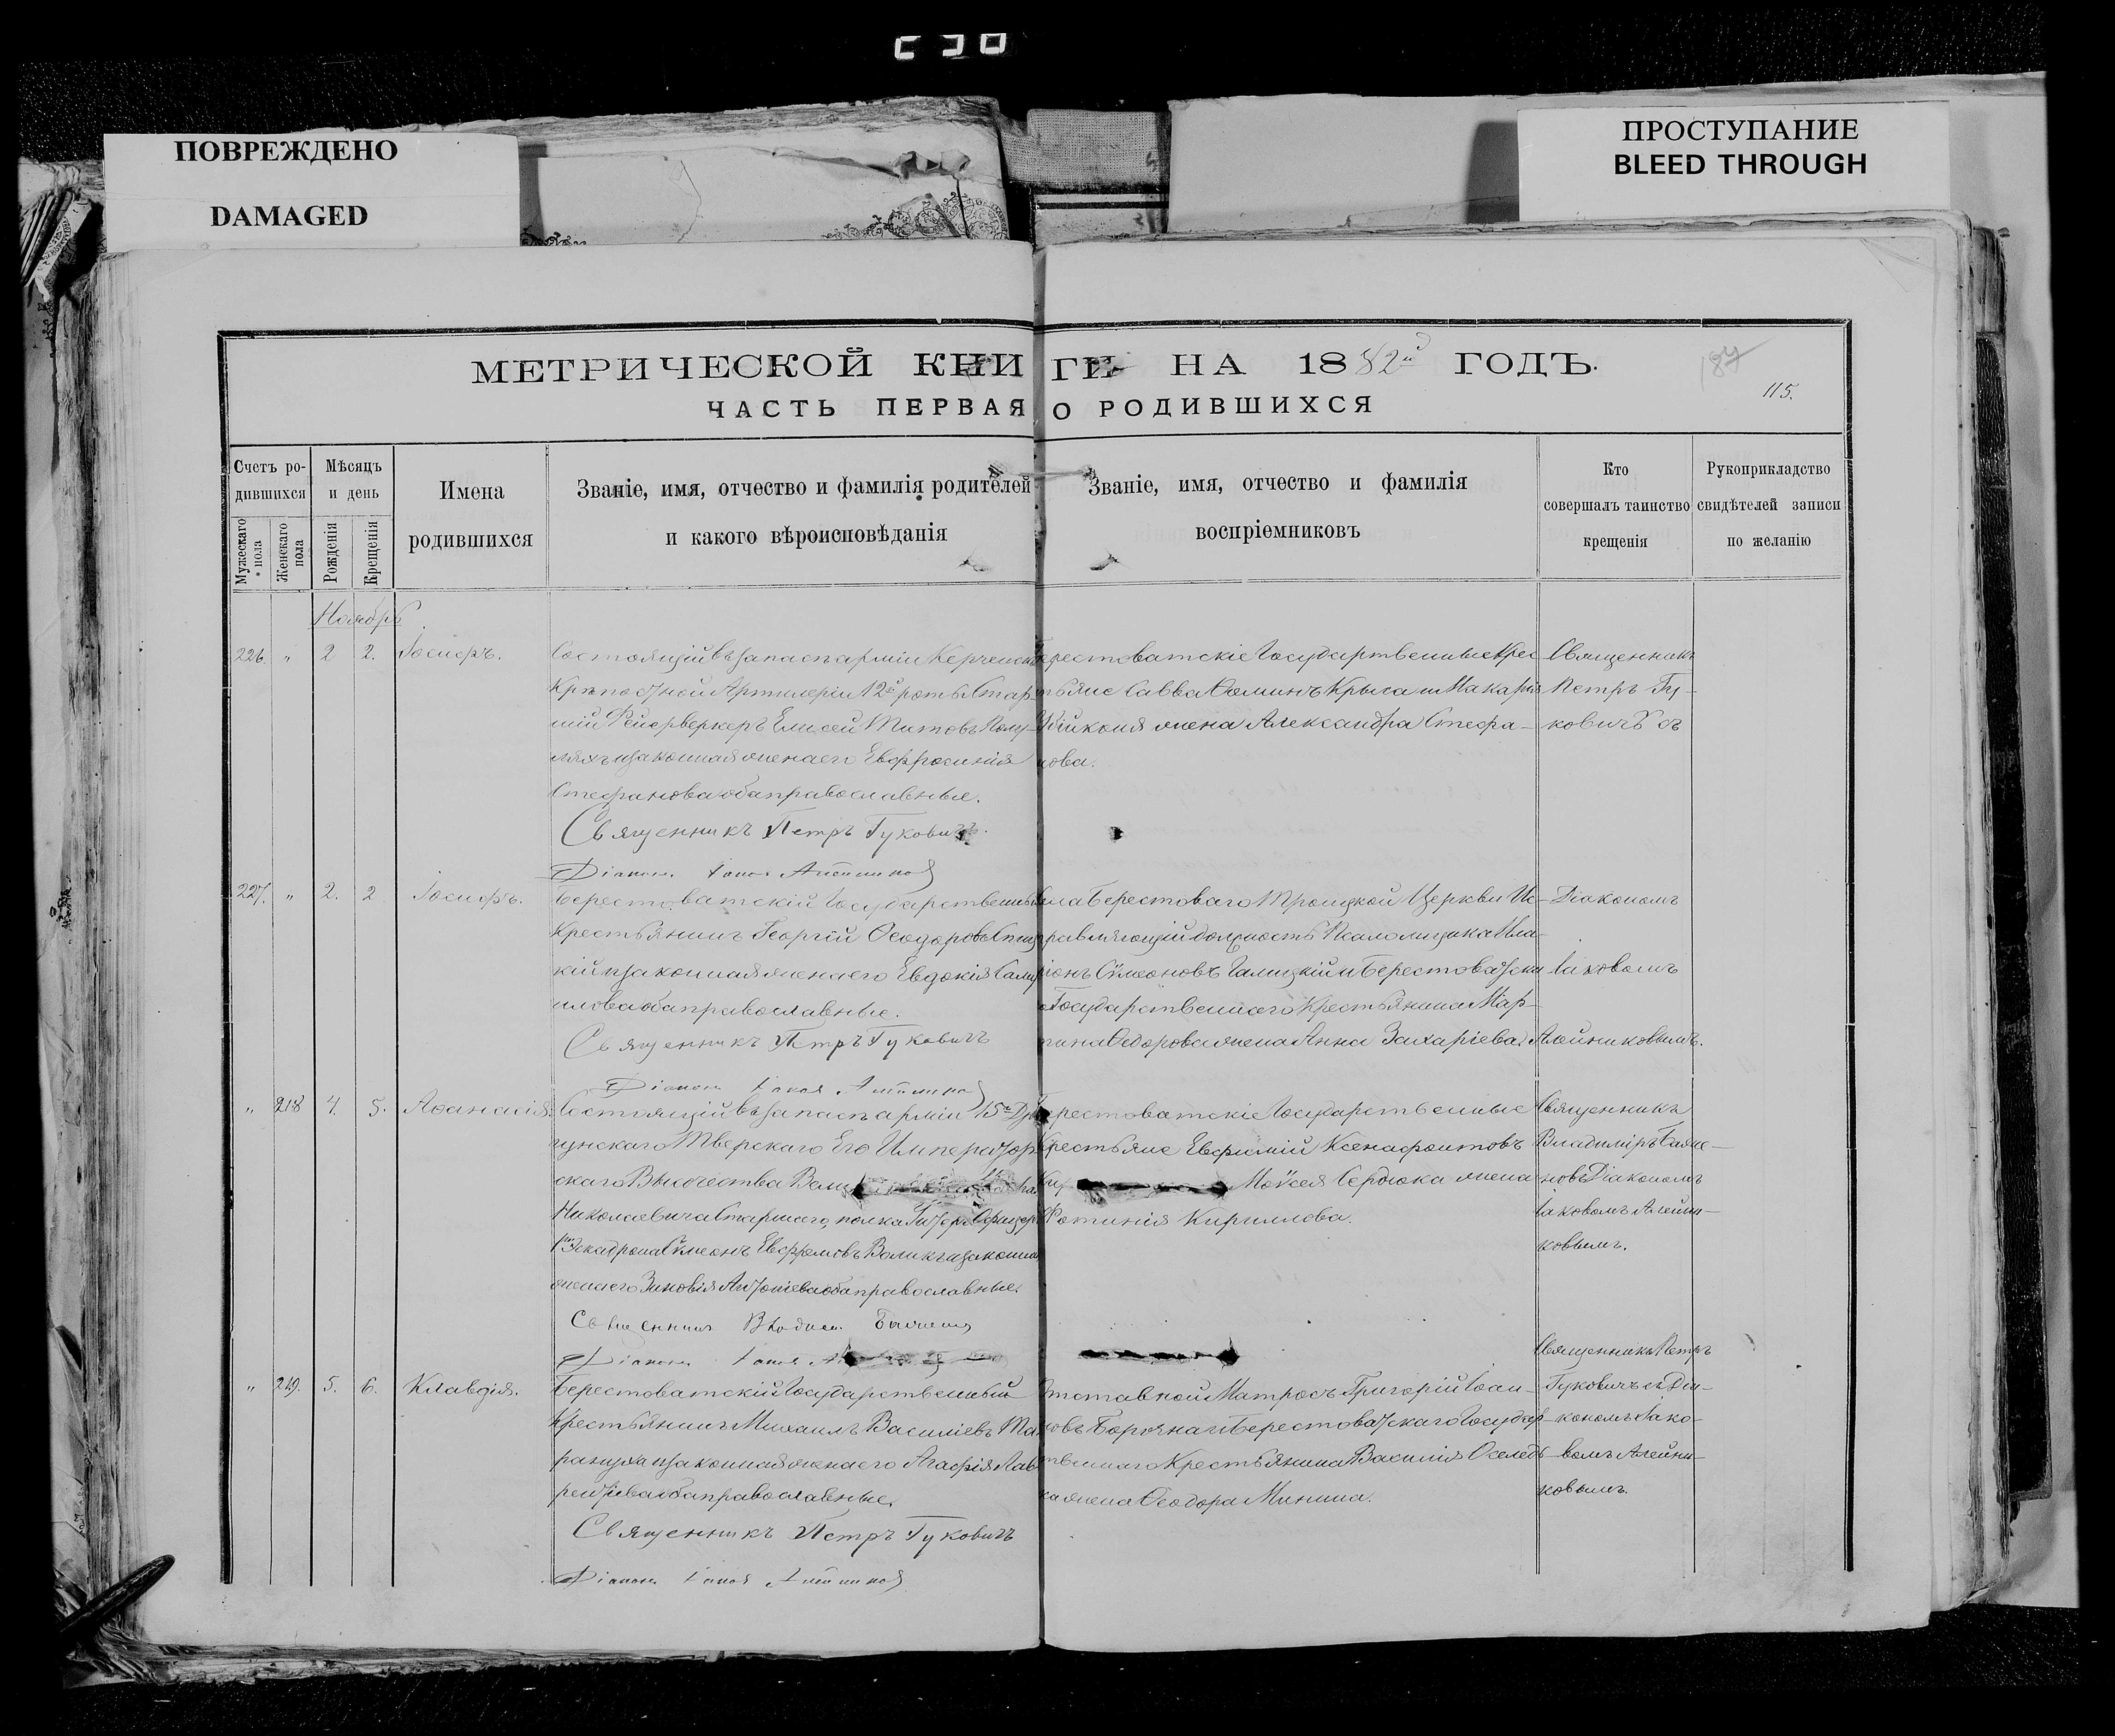 ПОВРЕЖДЕНО
DAMAGED
ПРОСТУПАНИЕ
BLEED THROUGH
МЕТРИЧЕСКОЙ КНИГИ НА 1882й ГОДЪ.
187
115.
ЧАСТЬ ПЕРВАЯ О РОДИВШИХСЯ
Счетъ ро-
дившихся
Мужескаго пола
Женскаго пола
Мѣсяцъ
и день
Рожденія
Крещенія
Имена
родившихся
Званіе, имя, отчество и фамилія родителей
и какого вѣроисповѣданія
Званіе, имя, отчество и фамилія
воспріемниковъ
Кто
совершалъ таинство
крещенія
Рукоприкладство
свидѣтелей записи
по желанію
Ноябрь
226. " 2 2. Іосифъ.
Состоящій въ запасѣ арміи Керченск
Крѣпостной Артилеріи 12й роты Стар-
шій Фейерверкеръ Елисей Титовъ
и законная жена его Евфросинія
Стефанова оба православные.
Священникъ Петръ Гуковичъ.
Діаконъ
Берестоватскіе Государственные Крес
тьяне Савва Ѳоминъ Крыса и Макарія
жена Александра Стефа-
нова.
Священникъ
Петръ Гу-
ковичъ съ
227. " 2. 2 Іосифъ.
Берестоватскій Государственный
Крестьянинъ Георгій Ѳеодоровъ
кій и законная жена его Евдокія Сам
илова оба православные.
Священникъ Петръ Гуковичъ
Діаконъ
села Берестоваго Троицкой Церкви Ис-
правляющій должность Псаломщика Ила-
ріонъ Сѵмеоновъ Галицкій и Берестоватска
Государственнаго Крестьянина Мар-
тина Ѳедорова жена Анна Захаріева.
Діакономъ
Іаковомъ
Алейниковымъ.
" 218 4. 5. Аѳанасія.
Состоящій въ запасѣ арміи 15го Дра
гунскаго Тверскаго Его Император
скаго Высочества Вели
Николаевича Старшаго, полка Унтеръ Офицеръ
1го Эскадрона Сѵмеонъ Евфремовъ Воликъ и законная
жена его Зиновія Антоніева оба православные.
Священникъ
Діаконъ
Берестоватскіе Государственные
Крестьяне Евфимій Ксенофонтовъ
Моѵсея Сердюка жена
Фотинія Кириллова.
Священникъ
Владиміръ Баже-
новъ Діакономъ
Іаковомъ Алейни-
ковымъ.
" 219. 5. 6. Клавдія.
Берестоватскій Государственный
Крестьянинъ Михаилъ Василіевъ Та
рануха и законная жена его Агафія Лав
рентіева оба православные.
Священникъ Петръ Гуковичъ
Діаконъ
Отставной Матросъ Григорій Іоан-
новъ и Берестоватскаго Государ
твеннаго Крестьянина Василія Оселед
ка жена Ѳеодора Минина.
Священникъ Петръ
Гуковичъ съ Діа-
кономъ Іако-
вомъ Алейни-
ковымъ.